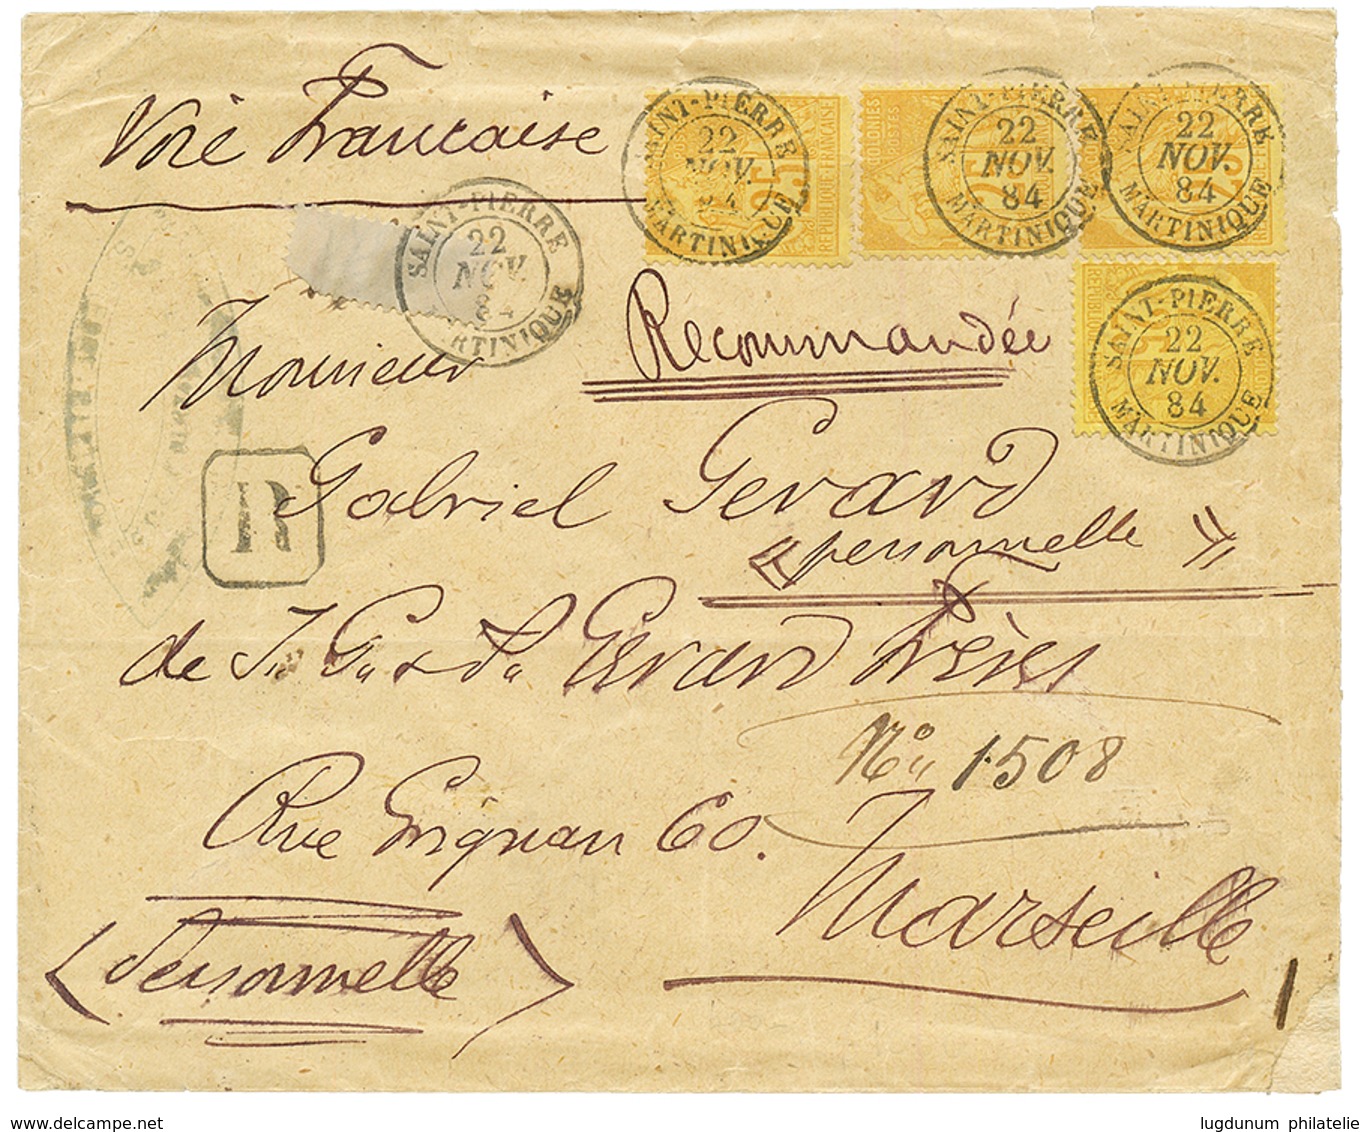 Voie Francaise
SAINT-PIERRE
22
NOV.
84
MARTINIQUE
25
RÉPUBLIQUE FRANÇAISE
SAINT-PIERRE
22
NOV.
84
MARTINIQUE
COLONIES
POSTES
25
SAINT-PIERRE
22
NOV.
84
MARTINIQUE
25
SAINT-PIERRE
22
NOV.
84
MARTINIQUE
SAINT-PIERRE
22
NOV.
84
MARTINIQUE
Recommandée
Monsieur
Gabriel Gerard
« personnelle »
R
de J. G. & d. Gerard Frères
No. 1508
Rue Grignan 60.
Marseille
(Personnelle)
lugdunum philatelie